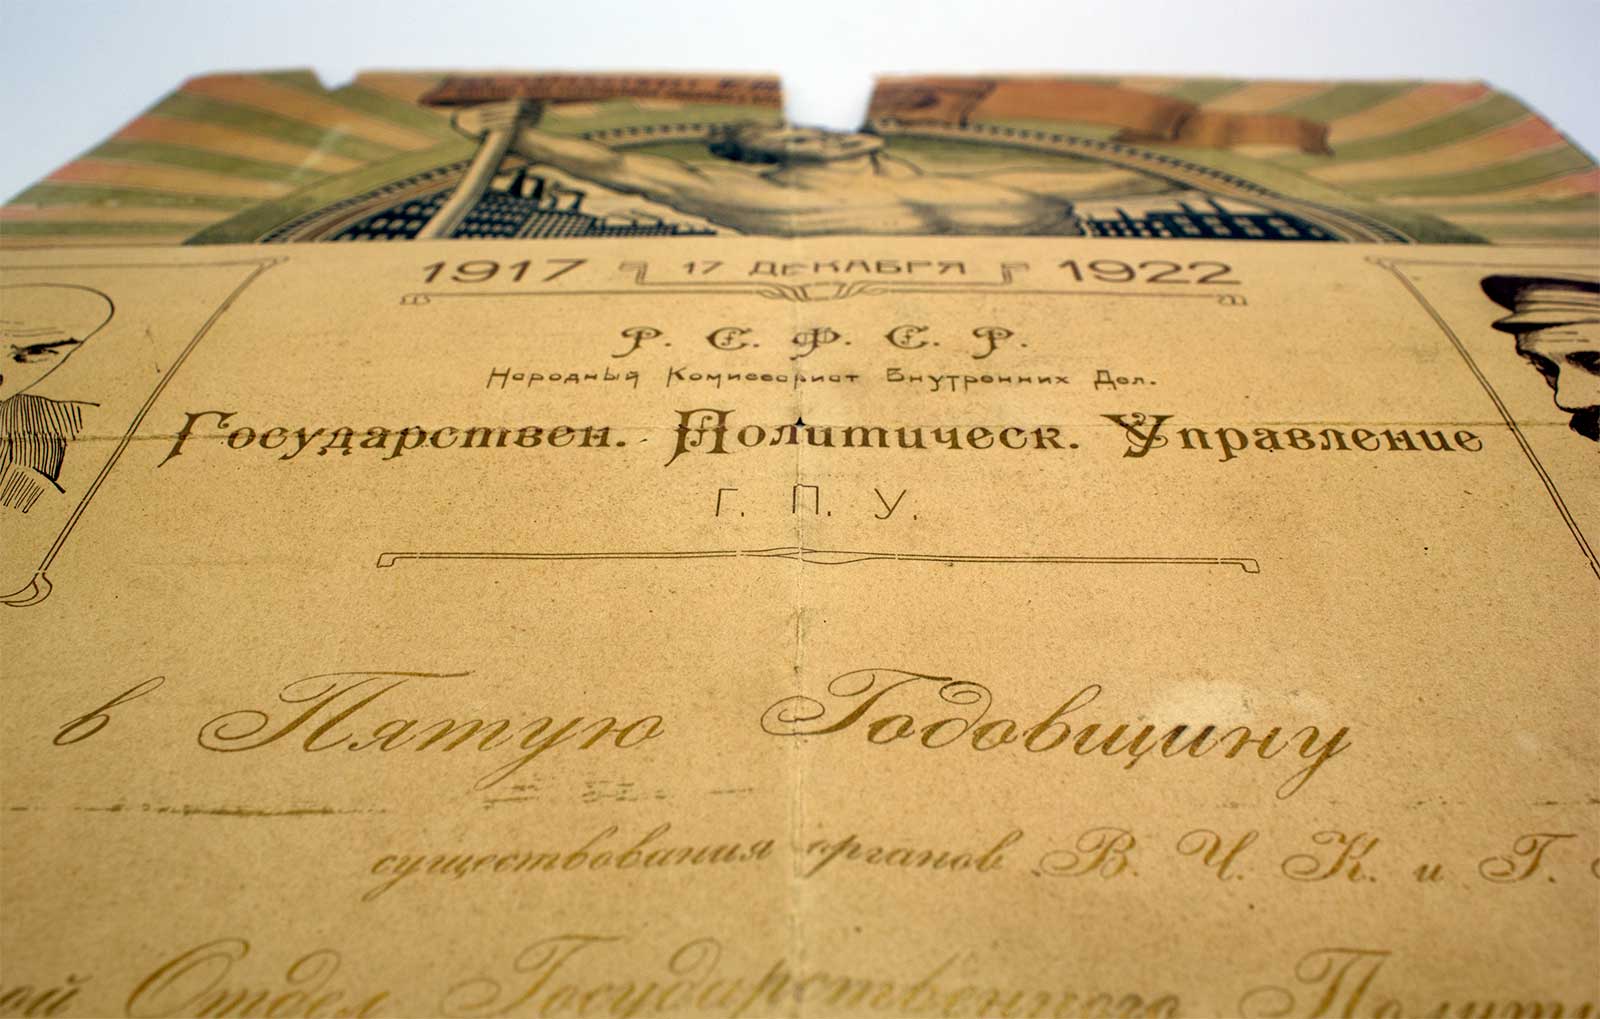 1917 17 ДЕКАБРЯ 1922
Р. С. Ф. С. Р.
Народный Комиссариат Внутренних Дел.
Государствен. Политическ. Управление
Г. П. У.
в Пятую Годовщину
существования органов В. Ч. К. и Г.
ой Отдел Государственного Полити